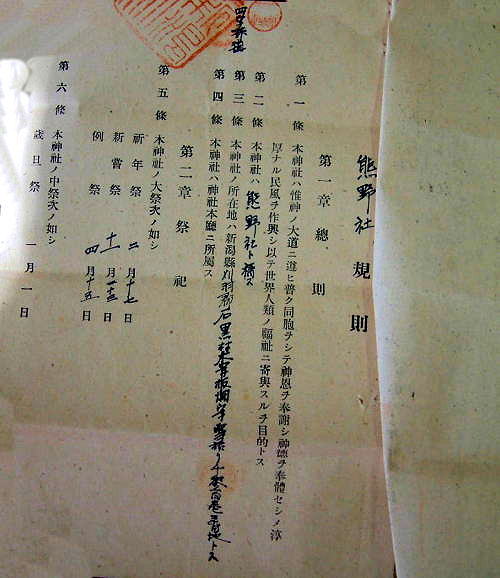 熊野社規則
第一章 總則
第一條 本神社ハ惟神ノ大道ニ遵ヒ普ク同胞ヲシテ神恩ヲ奉謝シ神德ヲ奉體セシメ淳
厚ナル民風ヲ作興シ以テ世界人類ノ福祉ニ寄與スルヲ目的トス
第二條 本神社ハ熊野社ト稱ス
第三條 本神社ノ所在地ハ新潟縣刈羽郡石黑村大字板畑
第四條 本神社ハ神社本廳ニ所屬ス
第二章 祭祀
第五條 本神社ノ大祭次ノ如シ
祈年祭 二月十七日
新嘗祭 十一月二十三日
例祭 四月十五日
第六條 本神社ノ中祭次ノ如シ
歲旦祭 一月一日